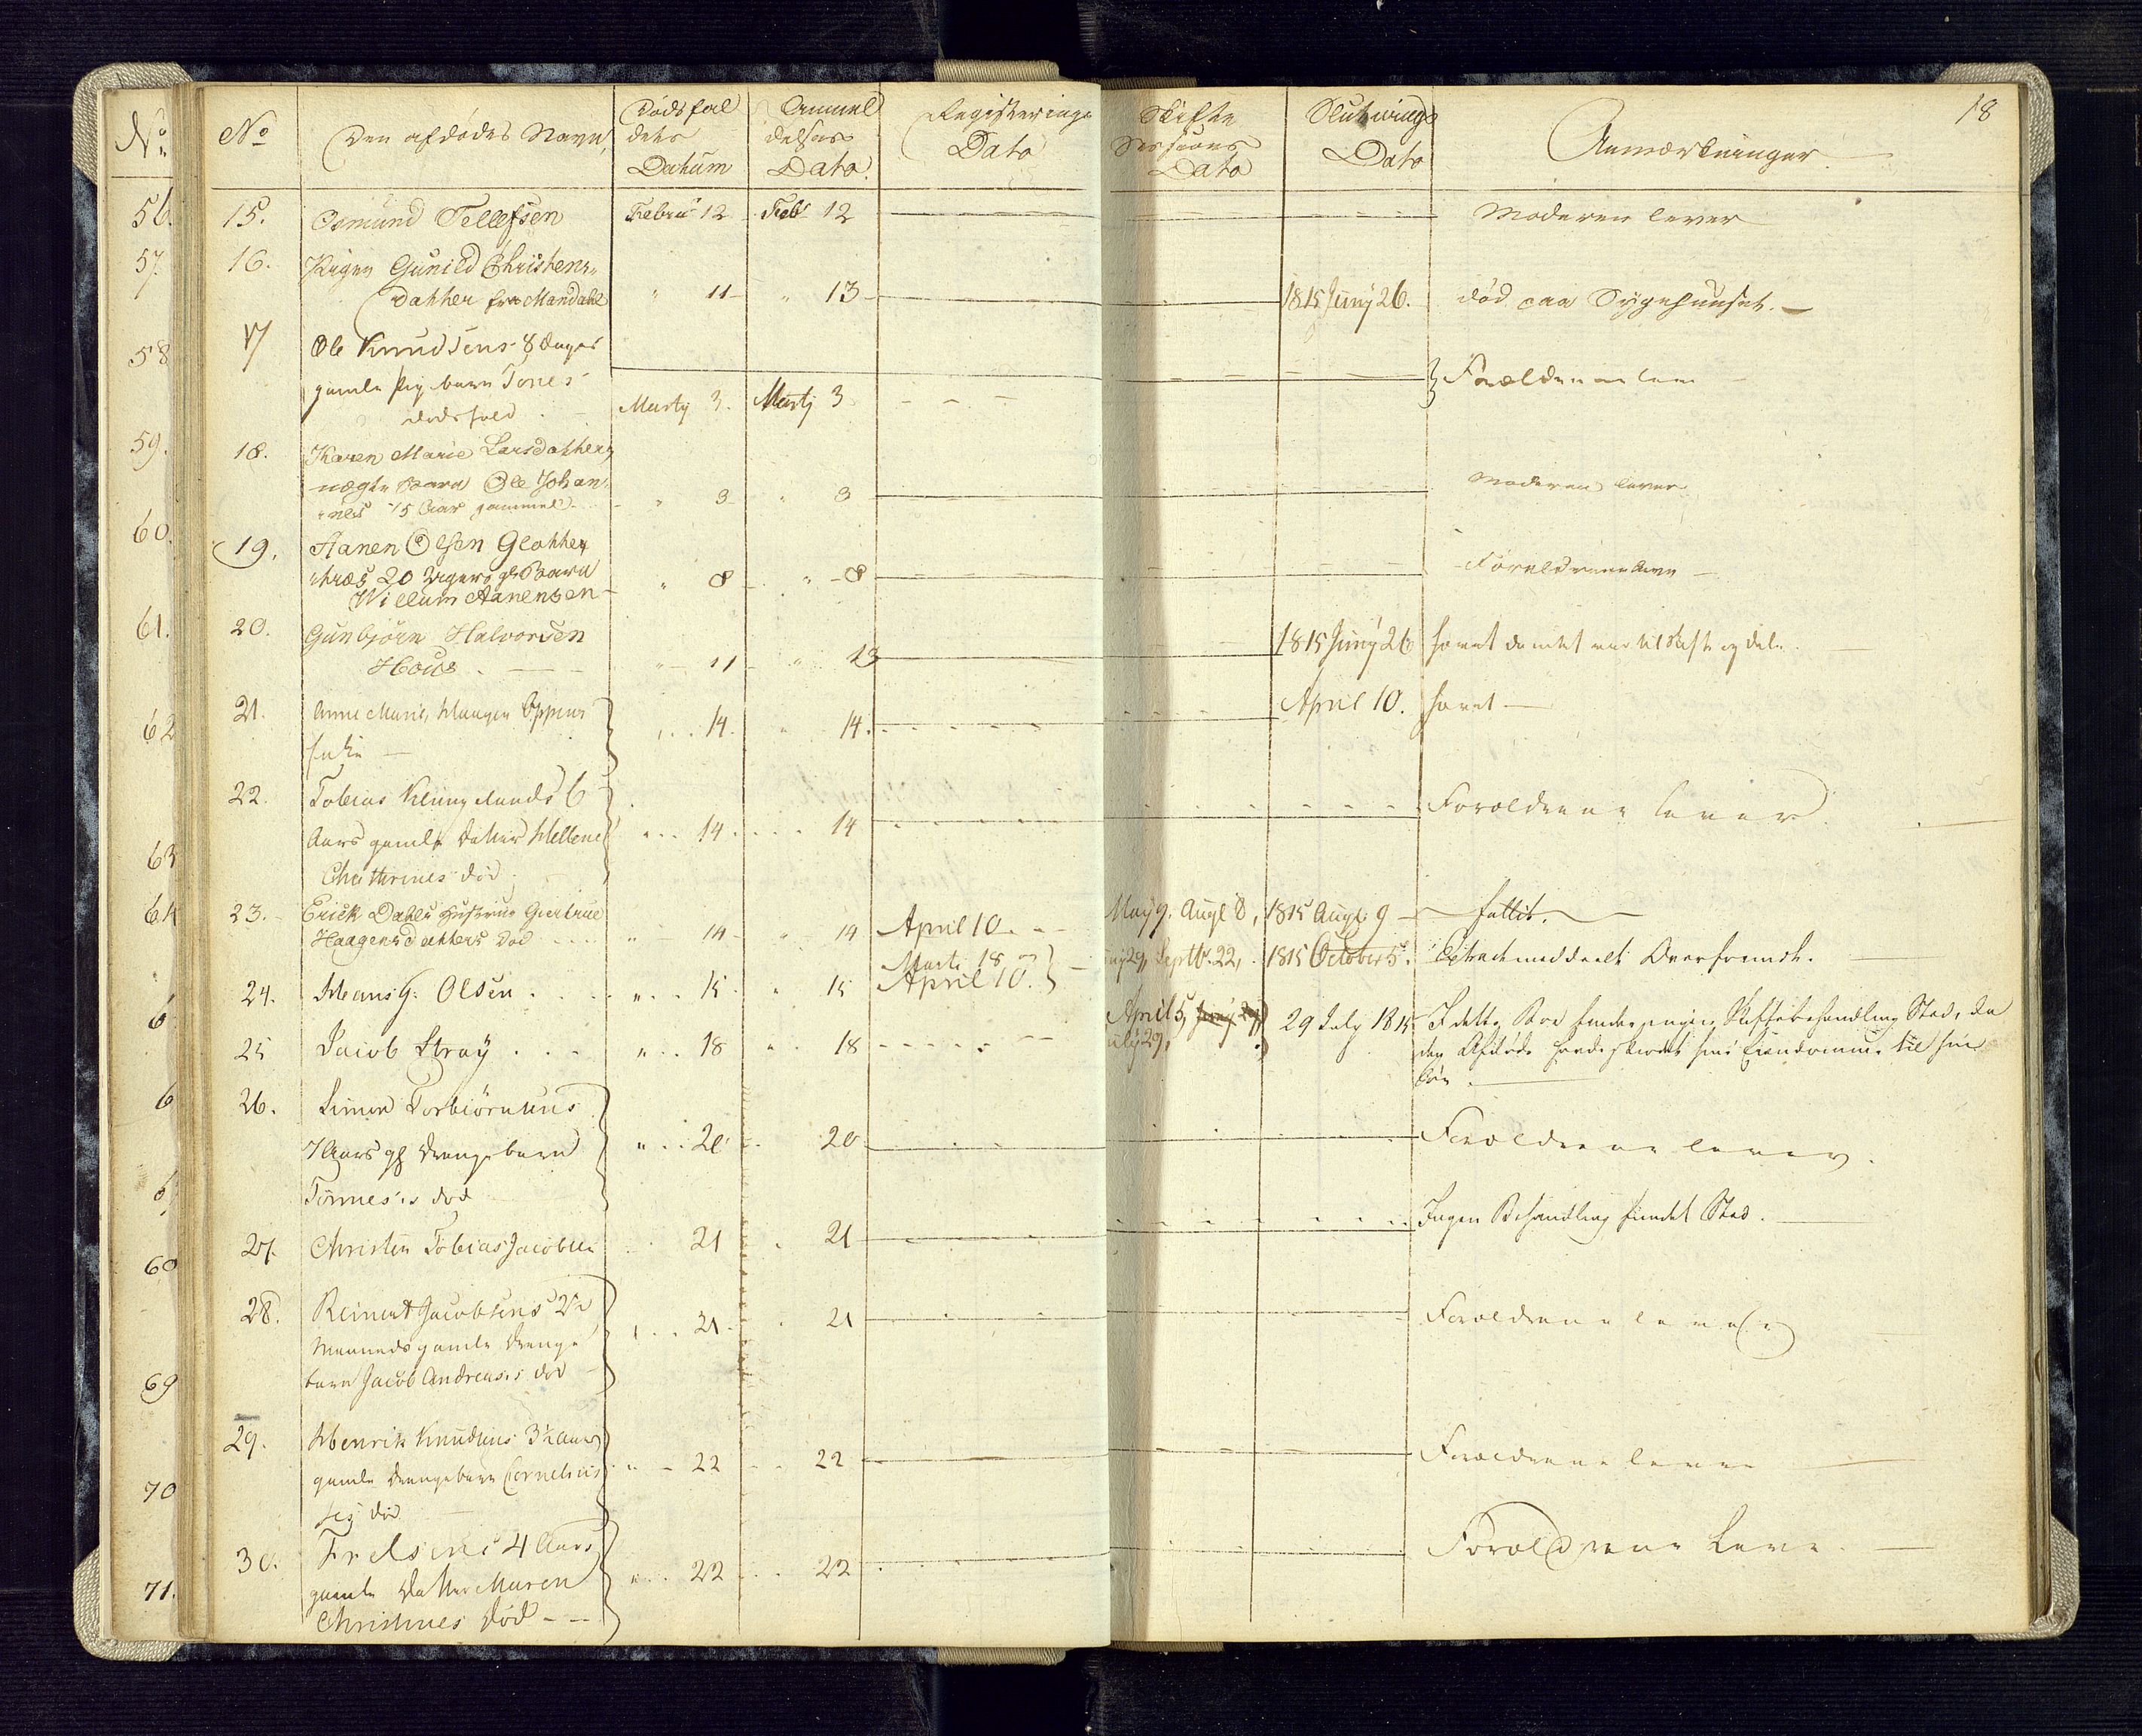 18
No
No
Den afdødes Navn
Dødsfal
dets
Datum
Anmel
delsens
Dato.
Registerings
Dato
Skifte
Sessions
Dato
Slutnings
Dato
Anmærkninger
56. 15. Osmund Tellefsen Februr 12 Febr 12 Moderen lever
57. 16. Pigen Gunild Christens-
Datter fra Mandahl " 11 " 13 1815 Junÿ 26. død paa Sygehuuset.
58 17 Ole Knudsens 8 Dages
gamle Pigebarn Tones
dødsfald Martÿ 3. Martj 3 Forældrene leve
59. 18. Karen Marie Larsdatters
uægte Barn Ole Johan-
nes 15 Aar gammel " 3 " 3 Moderen lever
60. 19. Aanen Olsen Glatte
20 Ugers gl Barn
Willum Aanensen " 8 " 8 Forældrene leve
61. 20. Gunbjörn Halvorsen
Hous " 11 " 13 1815 Junÿ 26 intet var til Skifte og dele
62 21. Anne Marie
" 14. " 14. April 10.
63 22. Tobias Klunglands 6
Aars gamle Datter Hellene
Chathrines død " 14. 14 Forældrene lever
64 23. Erick Dahls Hustrue Giertrue
Haagensdatters Død " 14 " 14 April 10 May 9. Augt 8, 1815 Augt 9 fallit.
24. Hans G. Olsen " 15 " 15 Marti 18
April 10. 29, Septbr. 22, 1815 October 5. Extract meddeelt
25 Jacob Straÿ " 18 " 18 April 5, Junÿ 29
ulÿ 29, 29 July 1815 I dette Boe finder ingen Skiftebehandling Sted, da
den Afdøde havde skiødet sine Eiendomme til sin
Søn
26. Simon Torbiørnsens
7 Aars gl Drengebarn
Tønnes's død " 20 20 Forældrene lever.
27. Christen Tobias Jacobsen 21 21 Ingen Behandling fundet Sted.
60
28. Reinert Jacobsens 2½
Maaneds gamle Drenge
barn Jacob Andreas's død 21. 21 Forældrene leve
69
29. Henrik Knudsens 3½ Aars
gamle Drengebarn Cornelius
ses død " 22 22 Forældrene leve
70
30. 4 Aars
gamle Datter Maren
Christines Død " 22 22 Forældrene Leve.
71.